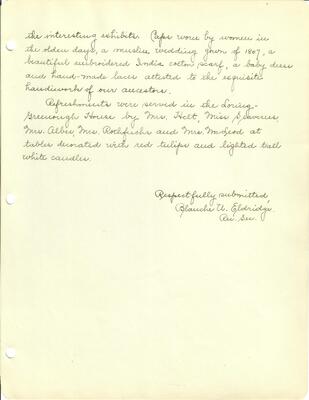 the interesting exhibits. Caps worn by women in
the olden days, a muslin wedding gown of 1807, a
beautiful embroidered India cotton scarf, a baby dress
and hand-made laces attested to the exquisite
handiwork of our ancestors.
Refreshments were served in the Loring-
Greenough House by Mrs. Holt, Miss
Mrs. Albee, Mrs. Rothfuchs and Mrs. McLeod at
tables decorated with red tulips and lighted tall
white candles.
Respectfully submitted,
Blanche U. Eldridge
Rec. Sec.